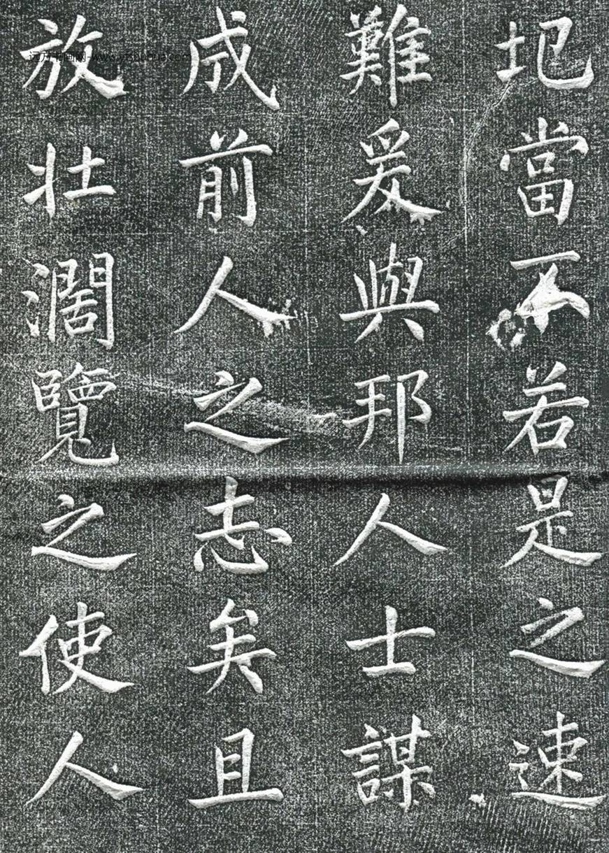 圯當不若是之速
難爰與邦人士謀
成前人之志矣且
放壯濶覽之使人